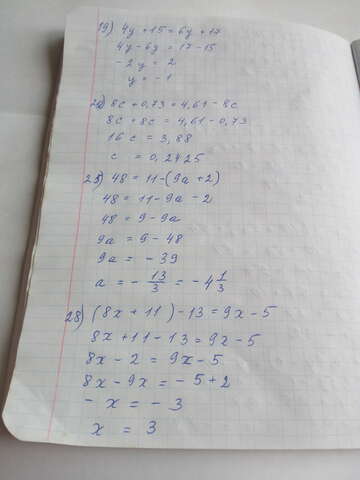 19) 4y + 15 = 6y + 17
4y - 6y = 17 - 15
-2y = 2
y = -1
22) 8c + 0,73 = 4,61 - 8c
8c + 8c = 4,61 - 0,73
16c = 3,88
c = 0,2425
25) 48 = 11 - (9a + 2)
48 = 11 - 9a - 2
48 = 9 - 9a
9a = 9 - 48
9a = -39
a = - 13/3 = -4 1/3
28) (8x + 11) - 13 = 9x - 5
8x + 11 - 13 = 9x - 5
8x - 2 = 9x - 5
8x - 9x = -5 + 2
-x = -3
x = 3